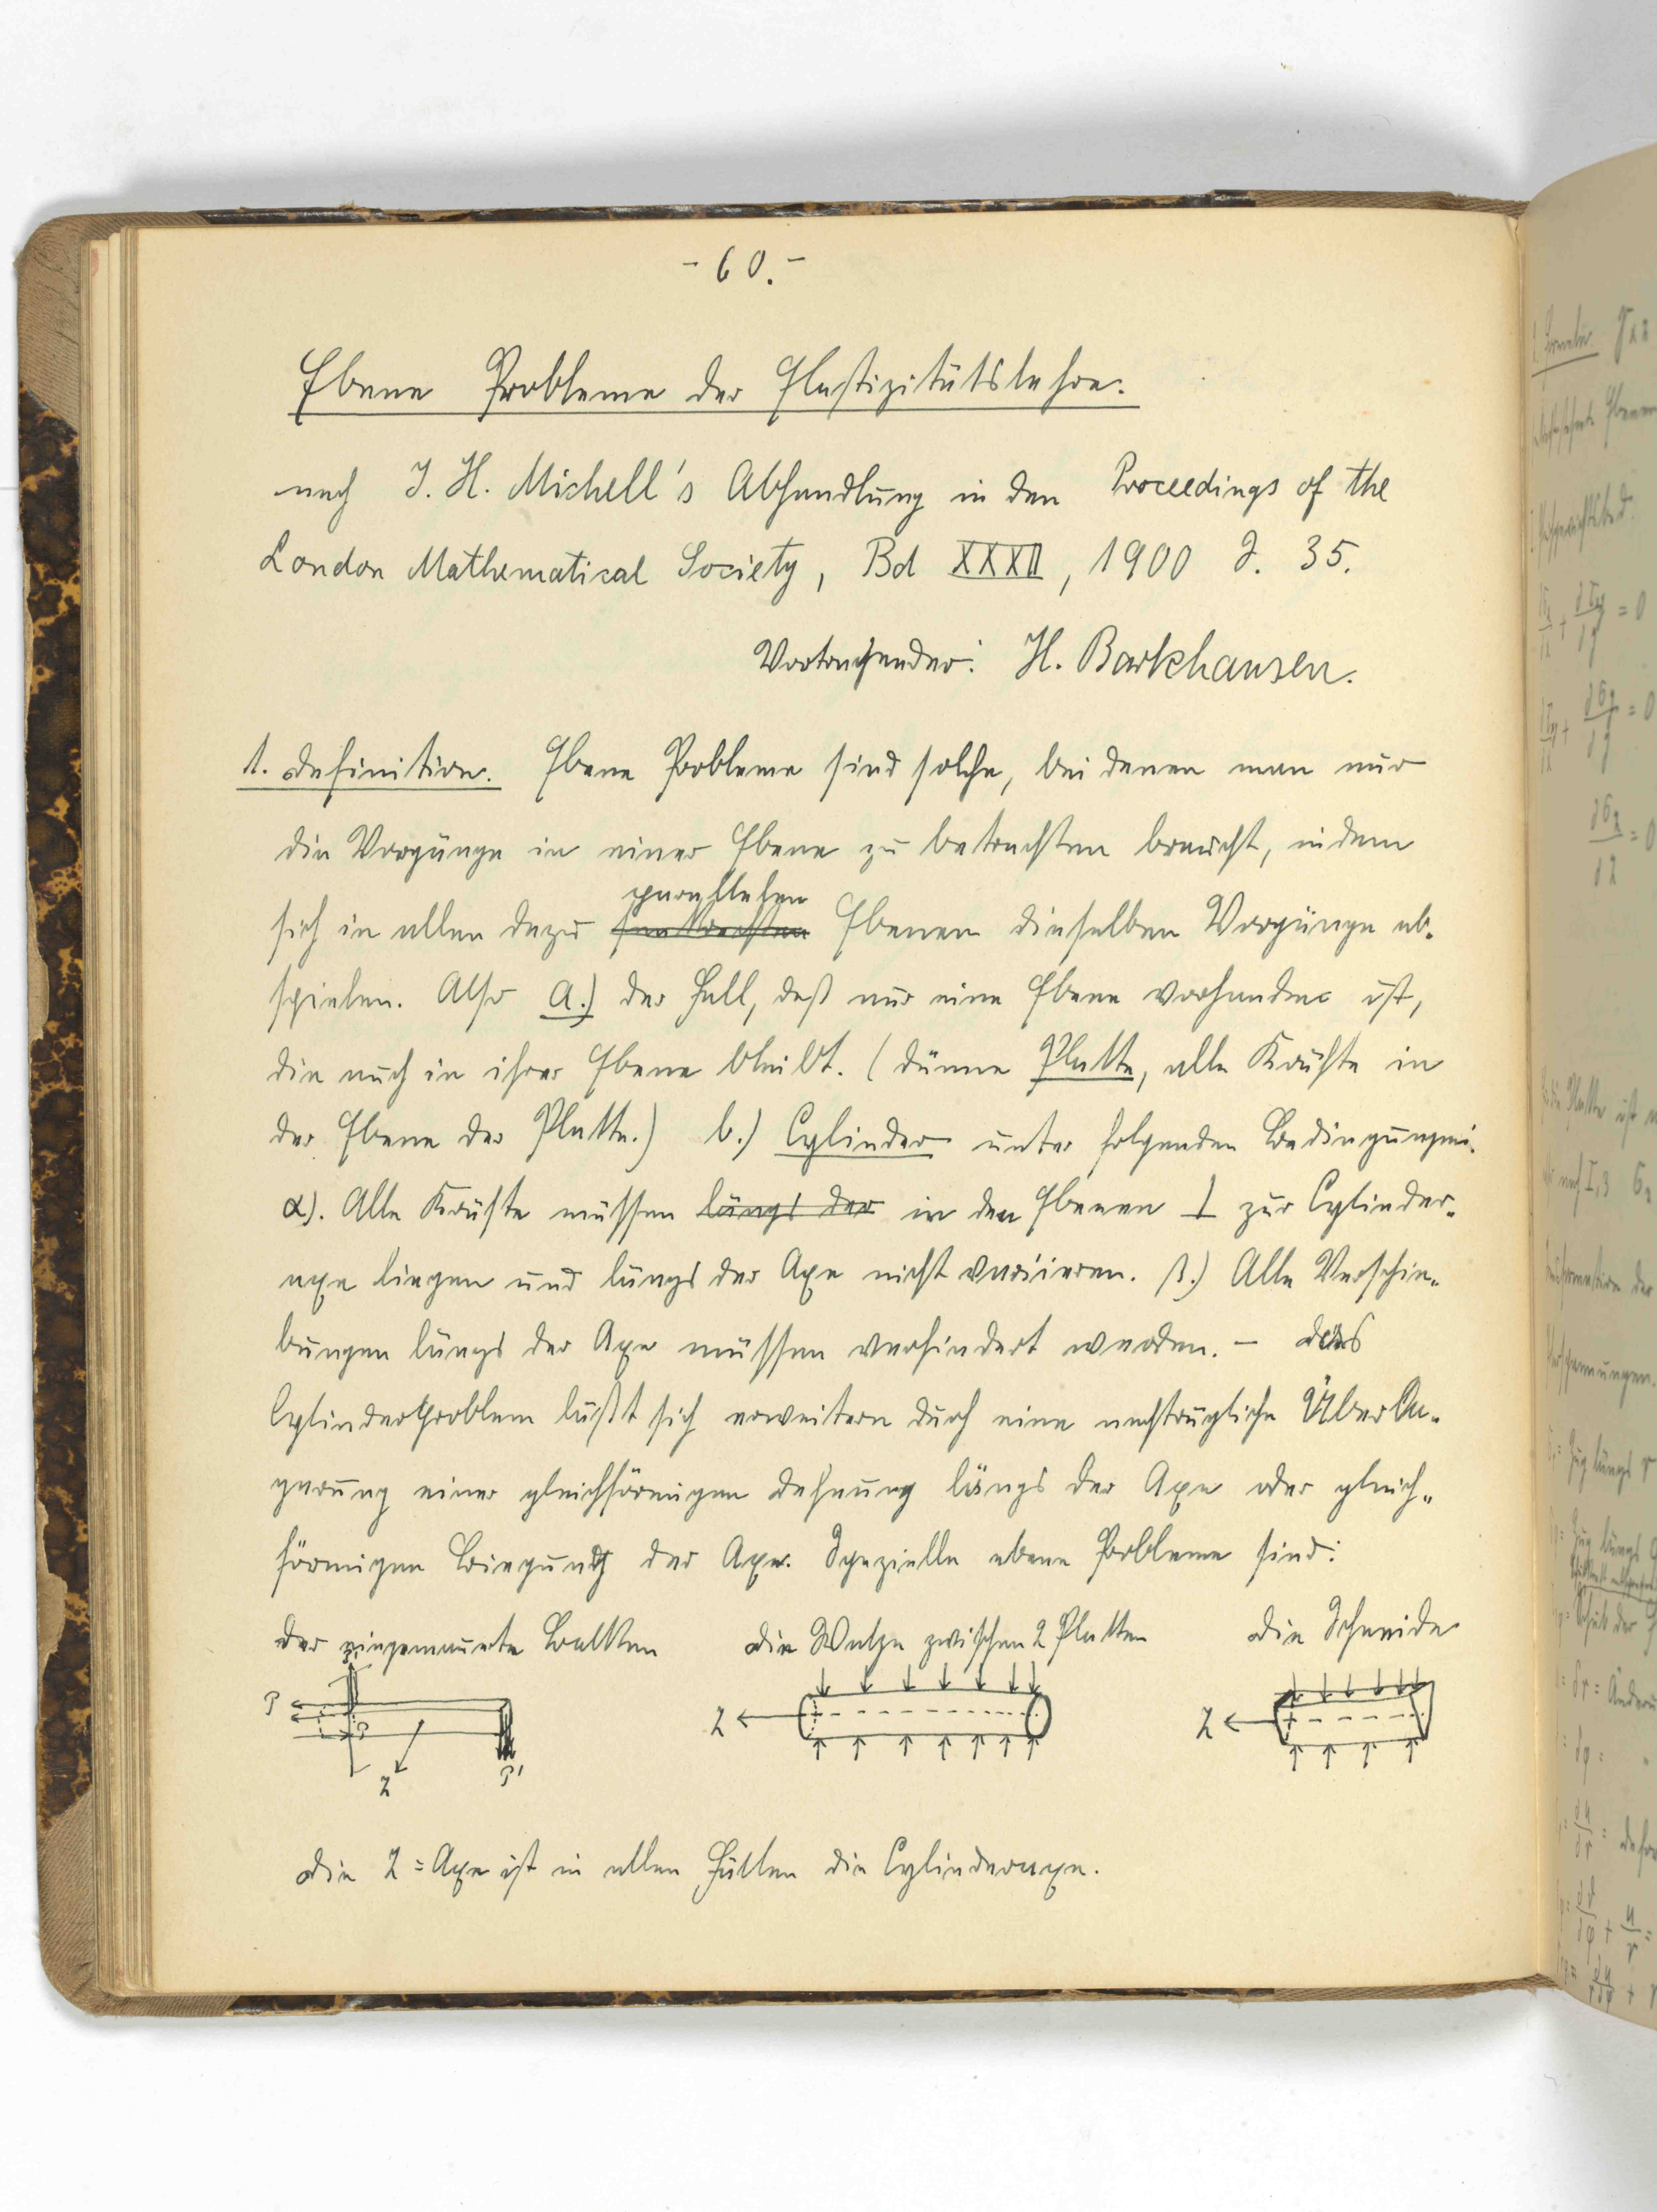 - 60. -
Ebene Probleme der Elastizitätslehre.
nach J. H. Michell's Abhandlung in den Proceedings of the
London Mathematical Society, Bd XXXII, 1900 S. 35.
Vortragender: H. Barkhausen.
1. Definition. Ebene Probleme sind solche, bei denen man nur
die Vorgänge in einer Ebene zu betrachten braucht, indem
parallelen
sich in allen dazu senkrechten Ebenen dieselben Vorgänge ab-
spielen. Also a.) der Fall, daß nur eine Ebene vorhanden ist,
die auch in ihrer Ebene bleibt. (dünne Platte, alle Kräfte in
der Ebene der Platte.) b.) Cylinder unter folgenden Bedingungen:
α). Alle Kräfte müssen längs der in den Ebenen ⊥ zur Cylinder-
axe liegen und längs der Axe nicht variieren. β.) Alle Verschie-
bungen längs der Axe müssen verhindert werden. – Das
Cylinderproblem läßt sich erweitern durch eine nachträgliche Überla-
gerung einer gleichförmigen Dehnung längs der Axe oder gleich-
förmigen Biegung der Axe. Spezielle ebene Probleme sind:
Der eingemauerte Balken die Walze zwischen 2 Platten die Schneide
P P Z P' Z Z
Die Z=Axe ist in allen Fällen die Cylinderaxe.